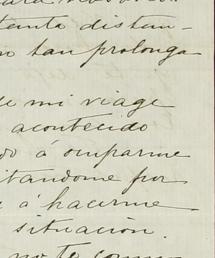 tanta distan-
n tan prolonga
de mi viage
acontecido
do á ocuparme
itandome por
s á hacerme
situación.
no te comu